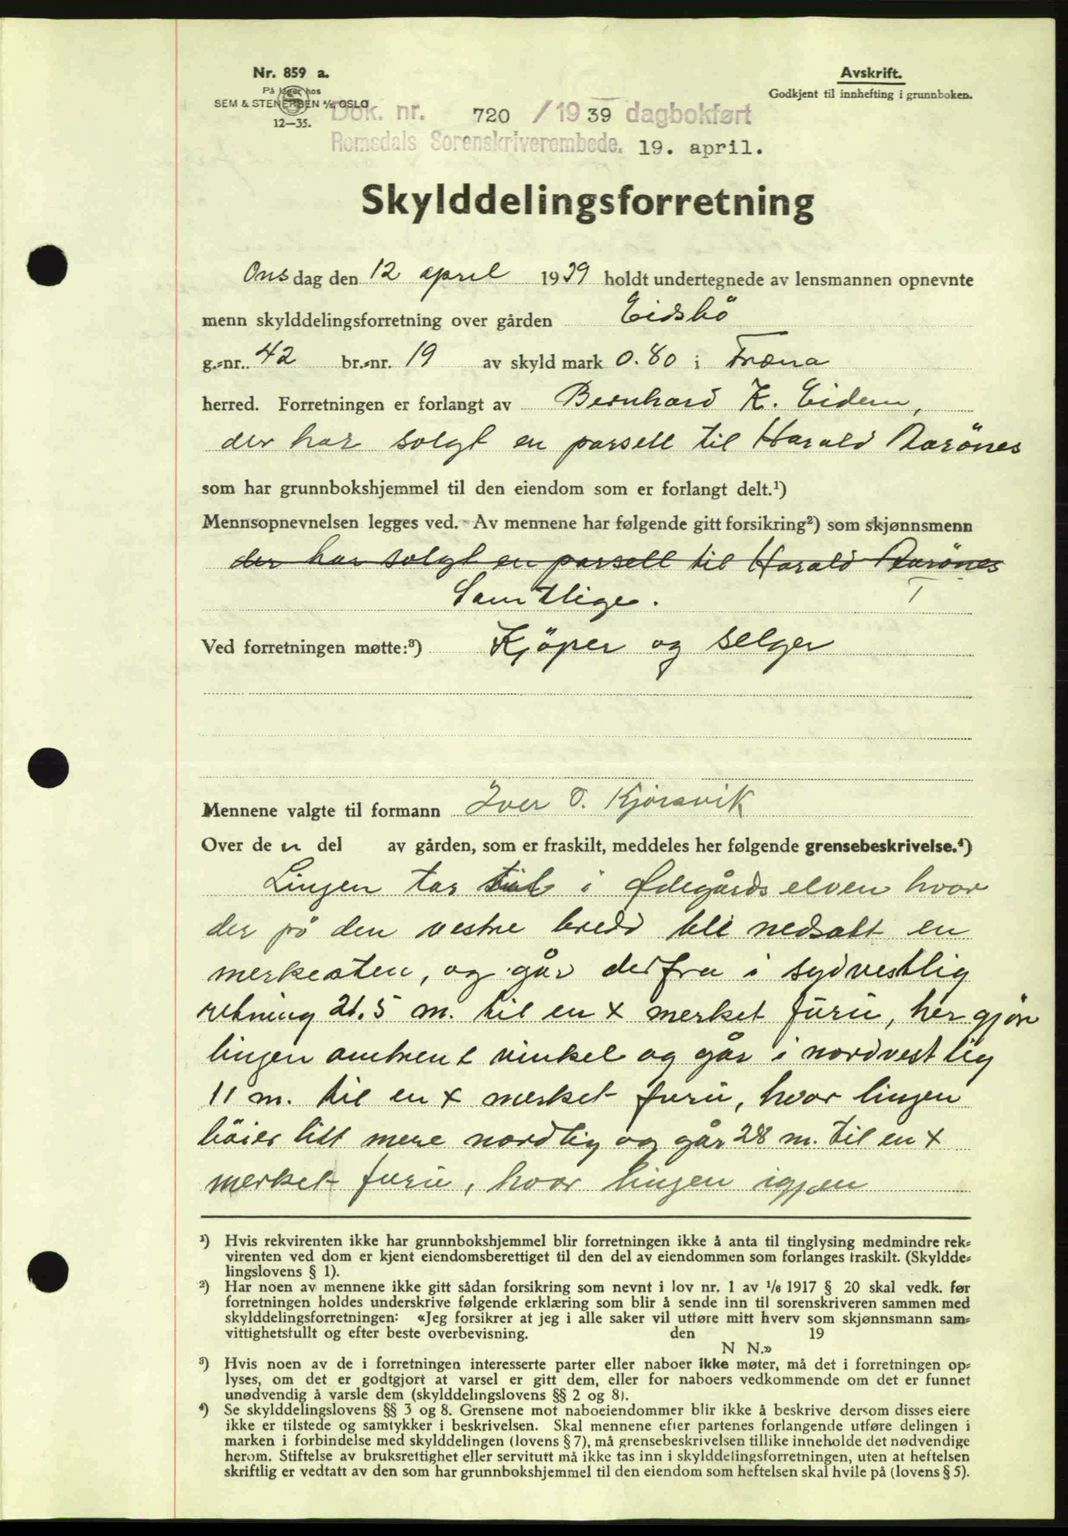 Nr. 859 a.
På lager hos
SEM & STENERSEN A/S OSLO
12—35.
Avskrift.
Godkjent til innhefting i grunnboken.
Dok. nr. 720 /1939 dagbokført
Romsdals Sorenskriverembede. 19. april.
Skylddelingsforretning
Onsdag den 12 april 1939 holdt undertegnede av lensmannen opnevnte
menn skylddelingsforretning over gården Eidsbö
g.-nr. 42 br.-nr. 19 av skyld mark 0.80 i Fræna
herred. Forretningen er forlangt av Bernhard K. Eidem,
der har solgt en parsell til Harald Aarönes
som har grunnbokshjemmel til den eiendom som er forlangt delt.¹)
Mennsopnevnelsen legges ved. Av mennene har følgende gitt forsikring²) som skjønnsmenn
der har solgt en parsell til Harald Aarönes
Samtlige.
Ved forretningen møtte:³) Kjöper og selger
Mennene valgte til formann Iver O. Kjörsvik
Over de n del av gården, som er fraskilt, meddeles her følgende grensebeskrivelse.⁴)
Linjen tar i Ødegårdselven hvor
der på den vestre bredd ble nedsatt en
merkesten, og går derfra i sydvestlig
retning 21.5 m. til en x merket furu, her gjör
linjen omtrent vinkel og går i nordvestlig
11 m. til en x merket furu, hvor linjen
böier litt mere nordlig og går 28 m. til en x
merket furu, hvor linjen igjen
¹) Hvis rekvirenten ikke har grunnbokshjemmel blir forretningen ikke å anta til tinglysing medmindre rek-
virenten ved dom er kjent eiendomsberettiget til den del av eiendommen som forlanges fraskilt. (Skyldde-
lingslovens § 1).
²) Har noen av mennene ikke gitt sådan forsikring som nevnt i lov nr. 1 av 1/6 1917 § 20 skal vedk. før
forretningen holdes underskrive følgende erklæring som blir å sende inn til sorenskriveren sammen med
skylddelingsforretningen: «Jeg forsikrer at jeg i alle saker vil utføre mitt hverv som skjønnsmann sam-
vittighetsfullt og efter beste overbevisning. den 19
N N.»
³) Hvis noen av de i forretningen interesserte parter eller naboer ikke møter, må det i forretningen op-
lyses, om det er godtgjort at varsel er gitt dem, eller for naboers vedkommende om det er funnet
unødvendig å varsle dem (skylddelingslovens §§ 2 og 8).
⁴) Se skylddelingslovens §§ 3 og 8. Grensene mot naboeiendommer blir ikke å beskrive dersom disses eiere
ikke er tilstede og samtykker i beskrivelsen. Skal mennene efter partenes forlangende utføre delingen i
marken i forbindelse med skylddelingen (lovens § 7), må grensebeskrivelsen tillike inneholde det nødvendige
herom. Stiftelse av bruksrettighet eller servitutt må ikke tas inn i skylddelingsforretningen, uten at heftelsen
skriftlig er vedtatt av den som har grunnbokshjemmel til den eiendom som heftelsen skal hvile på (lovens § 5).